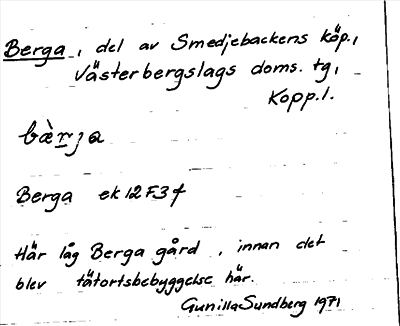 Berga, del av Smedjebackens köp.,
Västerbergslags doms. tg,
Kopp.l.
bæ̀rja
Berga ek 12F3f
Här låg Berga gård, innan det
blev tätortsbebyggelse här.
Gunilla Sundberg 1971